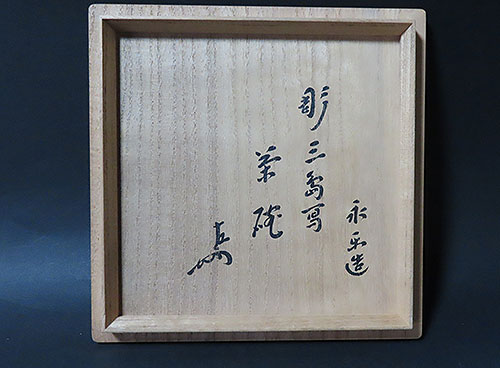 永樂造
彫三島写
茶碗